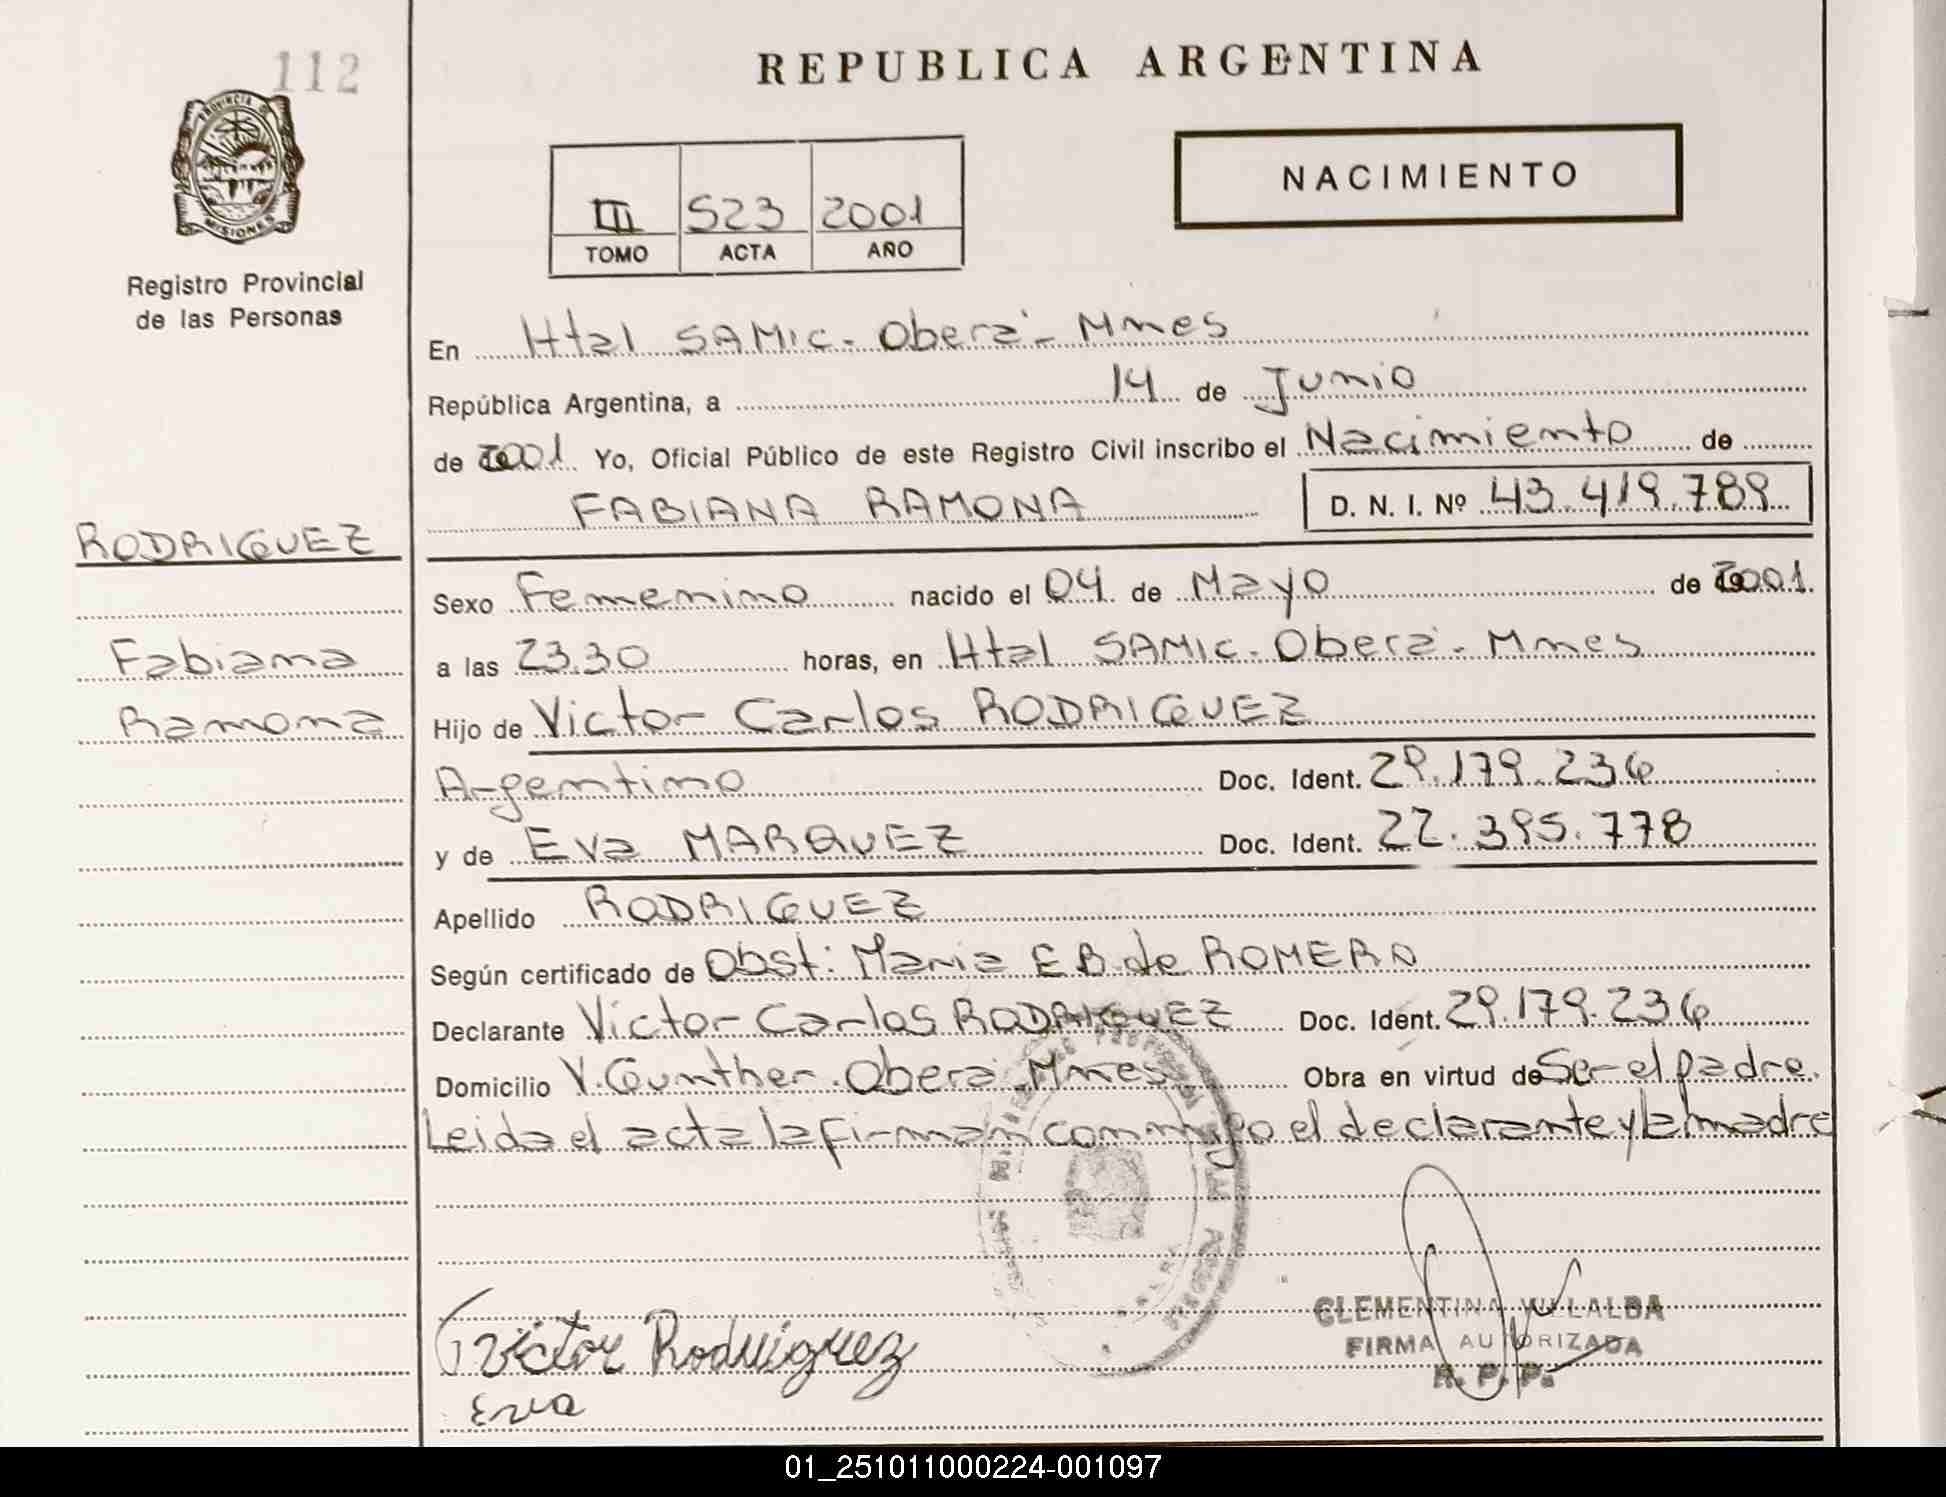 112
REPUBLICA ARGENTINA
PROVINCIA DE
MISIONES
Registro Provincial
de las Personas
NACIMIENTO
III 523 2001
TOMO ACTA AÑO
En Htal SAMIC. Oberá - Mnes
República Argentina, a 14 de Junio
de 2001 Yo, Oficial Público de este Registro Civil inscribo el Nacimiento de
FABIANA RAMONA D. N. I. Nº 43.419.789
RODRIGUEZ
Sexo Femenino nacido el 04 de Mayo de 2001.
Fabiana
a las 23.30 horas, en Htal SAMIC. Oberá - Mnes
Ramona
Hijo de Victor Carlos RODRIGUEZ
Argentino Doc. Ident. 29.179.236
y de Eva MARQUEZ Doc. Ident. 22.395.778
Apellido RODRIGUEZ
Según certificado de Obst: Maria E B. de ROMERO
Declarante Victor Carlos RODRIGUEZ Doc. Ident. 29.179.236
Domicilio V. Gunther. Oberá - Mnes Obra en virtud de Ser el padre.
Leida el acta la firman conmigo el declarante y la madre
CLEMENTINA VILLALBA
FIRMA AUTORIZADA
R. P. P.
Victor Rodriguez
Eva
01_251011000224-001097